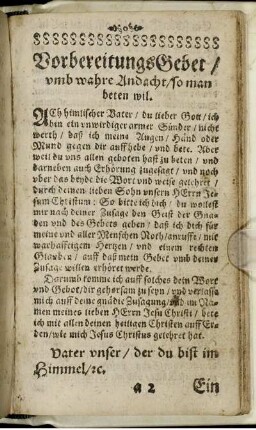 VorbereitungsGebet /
vmb wahre Andacht / so man
beten wil.
ACh himlischer Vater / du lieber Gott / ich
bin ein vnwirdiger armer Sünder / nicht
werth / daß ich meine Augen / Händ oder
Mund gegen dir auffhebe / vnd bete. Aber
weil du vns allen geboten hast zu beten / vnd
darneben auch Erhörung zugesagt / vnd noch
vber das beyde die Wort vnd weise gelehret /
durch deinen lieben Sohn vnsern HErrn Je-
sum Christum: So bitte ich dich / du wollest
mir nach deiner Zusage den Geist der Gna-
den vnd des Gebets geben / daß ich dich für
meine vnd aller Menschen Noth / anruffe / mit
warhafftigem Hertzen / vnd einem rechten
Glauben / auff daß mein Gebet vmb deiner
Zusage willen erhöret werde.
Darumb komme ich auff solches dein Wort
vnd Gebot / dir gehorsam zu seyn / vnd verlasse
mich auff deine gnädige Zusagung / vnd im Na-
men meines lieben HErrn Jesu Christi / bete
ich mit allen deinen heiligen Christen auff Er-
den / wie mich Jesus Christus gelehret hat.
Vater vnser / der du bist im
Himmel / ꝛc.
a 2 Ein